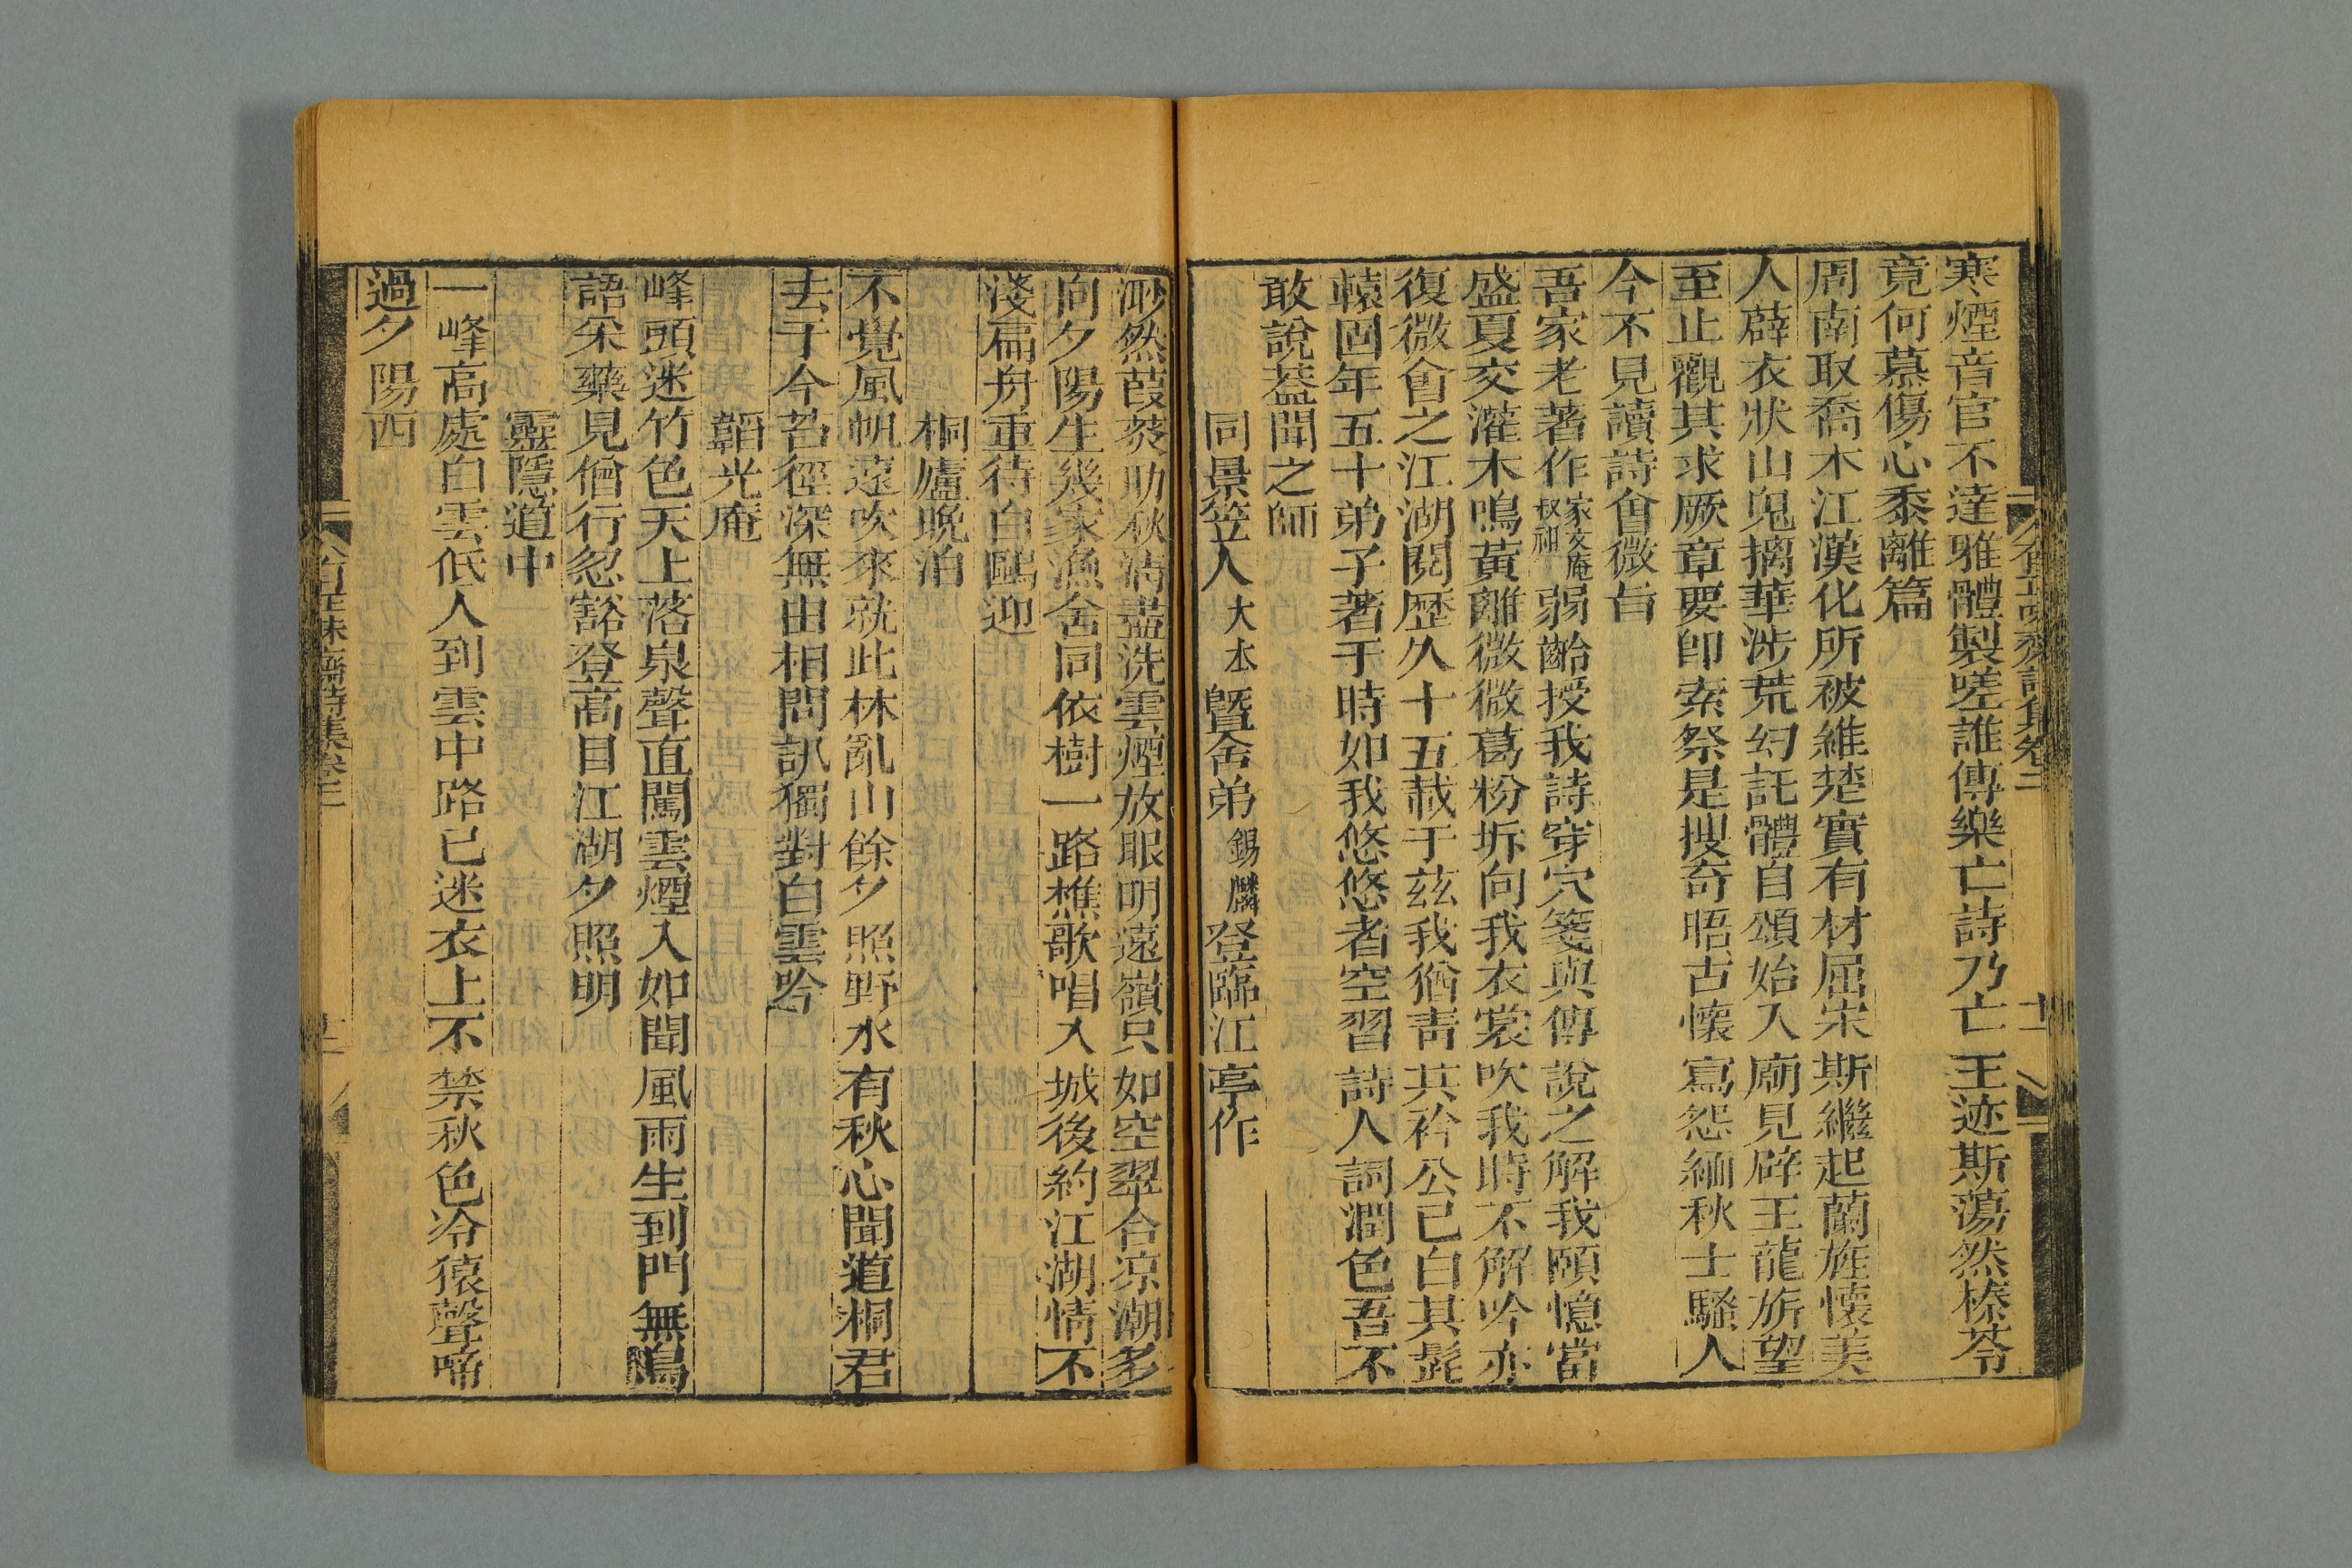 寒煙音官不達雅體製嗟誰傳樂亡詩乃亡王迹斯蕩然榛苓
竟何慕傷心黍離篇
周南取喬木江漢化所被維楚實有材屈宋斯繼起蘭旌懷美
人薜衣狀山鬼摛華涉荒幻託體自頌始入廟見辟王龍旂望
至止觀其求厥章要卽索祭是搜奇晤古懷寫怨緬秋士騷人
今不見讀詩會微旨
吾家老著作家文庵叔祖弱齡授我詩穿穴箋與傳說之解我頤憶當
盛夏交灌木鳴黃離微微葛粉坼向我衣裳吹我時不解吟亦
復微會之江湖閱歷久十五載于兹我猶靑其衿公已白其髭
轅固年五十弟子著于時如我悠悠者空習詩人詞潤色吾不
敢說葢聞之師
同景笠人大本曁舍弟錫麟登臨江亭作
渺然葭菼助秋淸盡洗雲煙放眼明遠嶺只如空翠合凉潮多
向夕陽生幾家漁舍同依樹一路樵歌唱入城後約江湖情不
淺扁舟重待白鷗迎
桐廬晚泊
不覺風帆遠吹來就此林亂山餘夕照野水有秋心聞道桐君
去于今茗徑深無由相問訊獨對白雲吟
韜光庵
峰頭迷竹色天上落泉聲直闖雲煙入如聞風雨生到門無鳥
語采藥見僧行忽豁登高目江湖夕照明
靈隱道中
一峰高處白雲低人到雲中路已迷衣上不禁秋色冷猿聲啼
過夕陽西